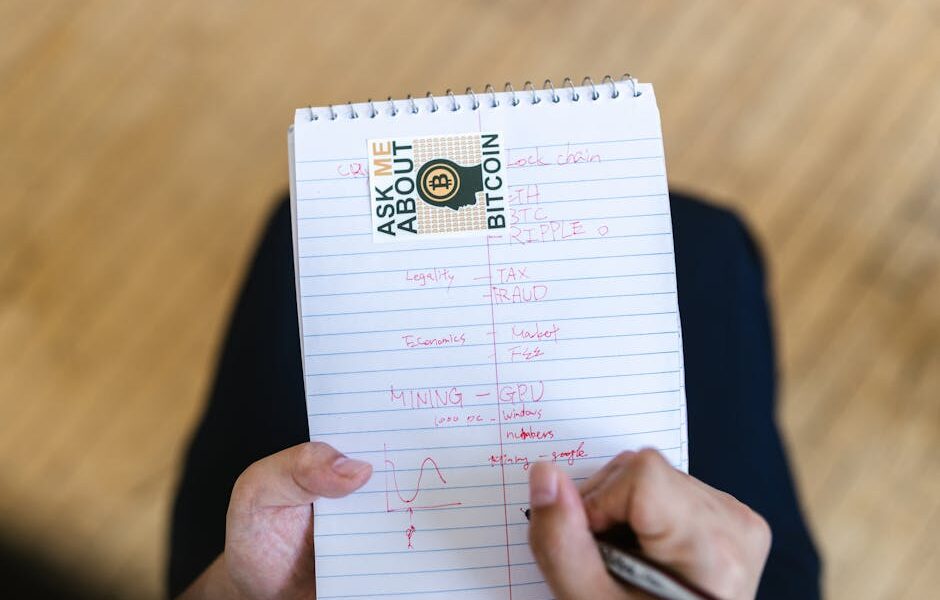 ASK ME
ABOUT
BITCOIN
lock chain
ETH
BTC
RIPPLE
Legality — TAX
FRAUD
Economics — Market
MINING — GPU
1000 PC - Windows
numbers
- google